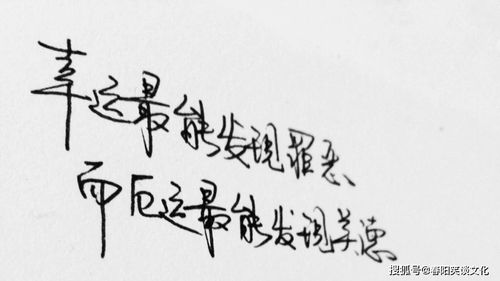 幸运最能发现罪恶
而厄运最能发现美德
搜狐号@春阳笑谈文化